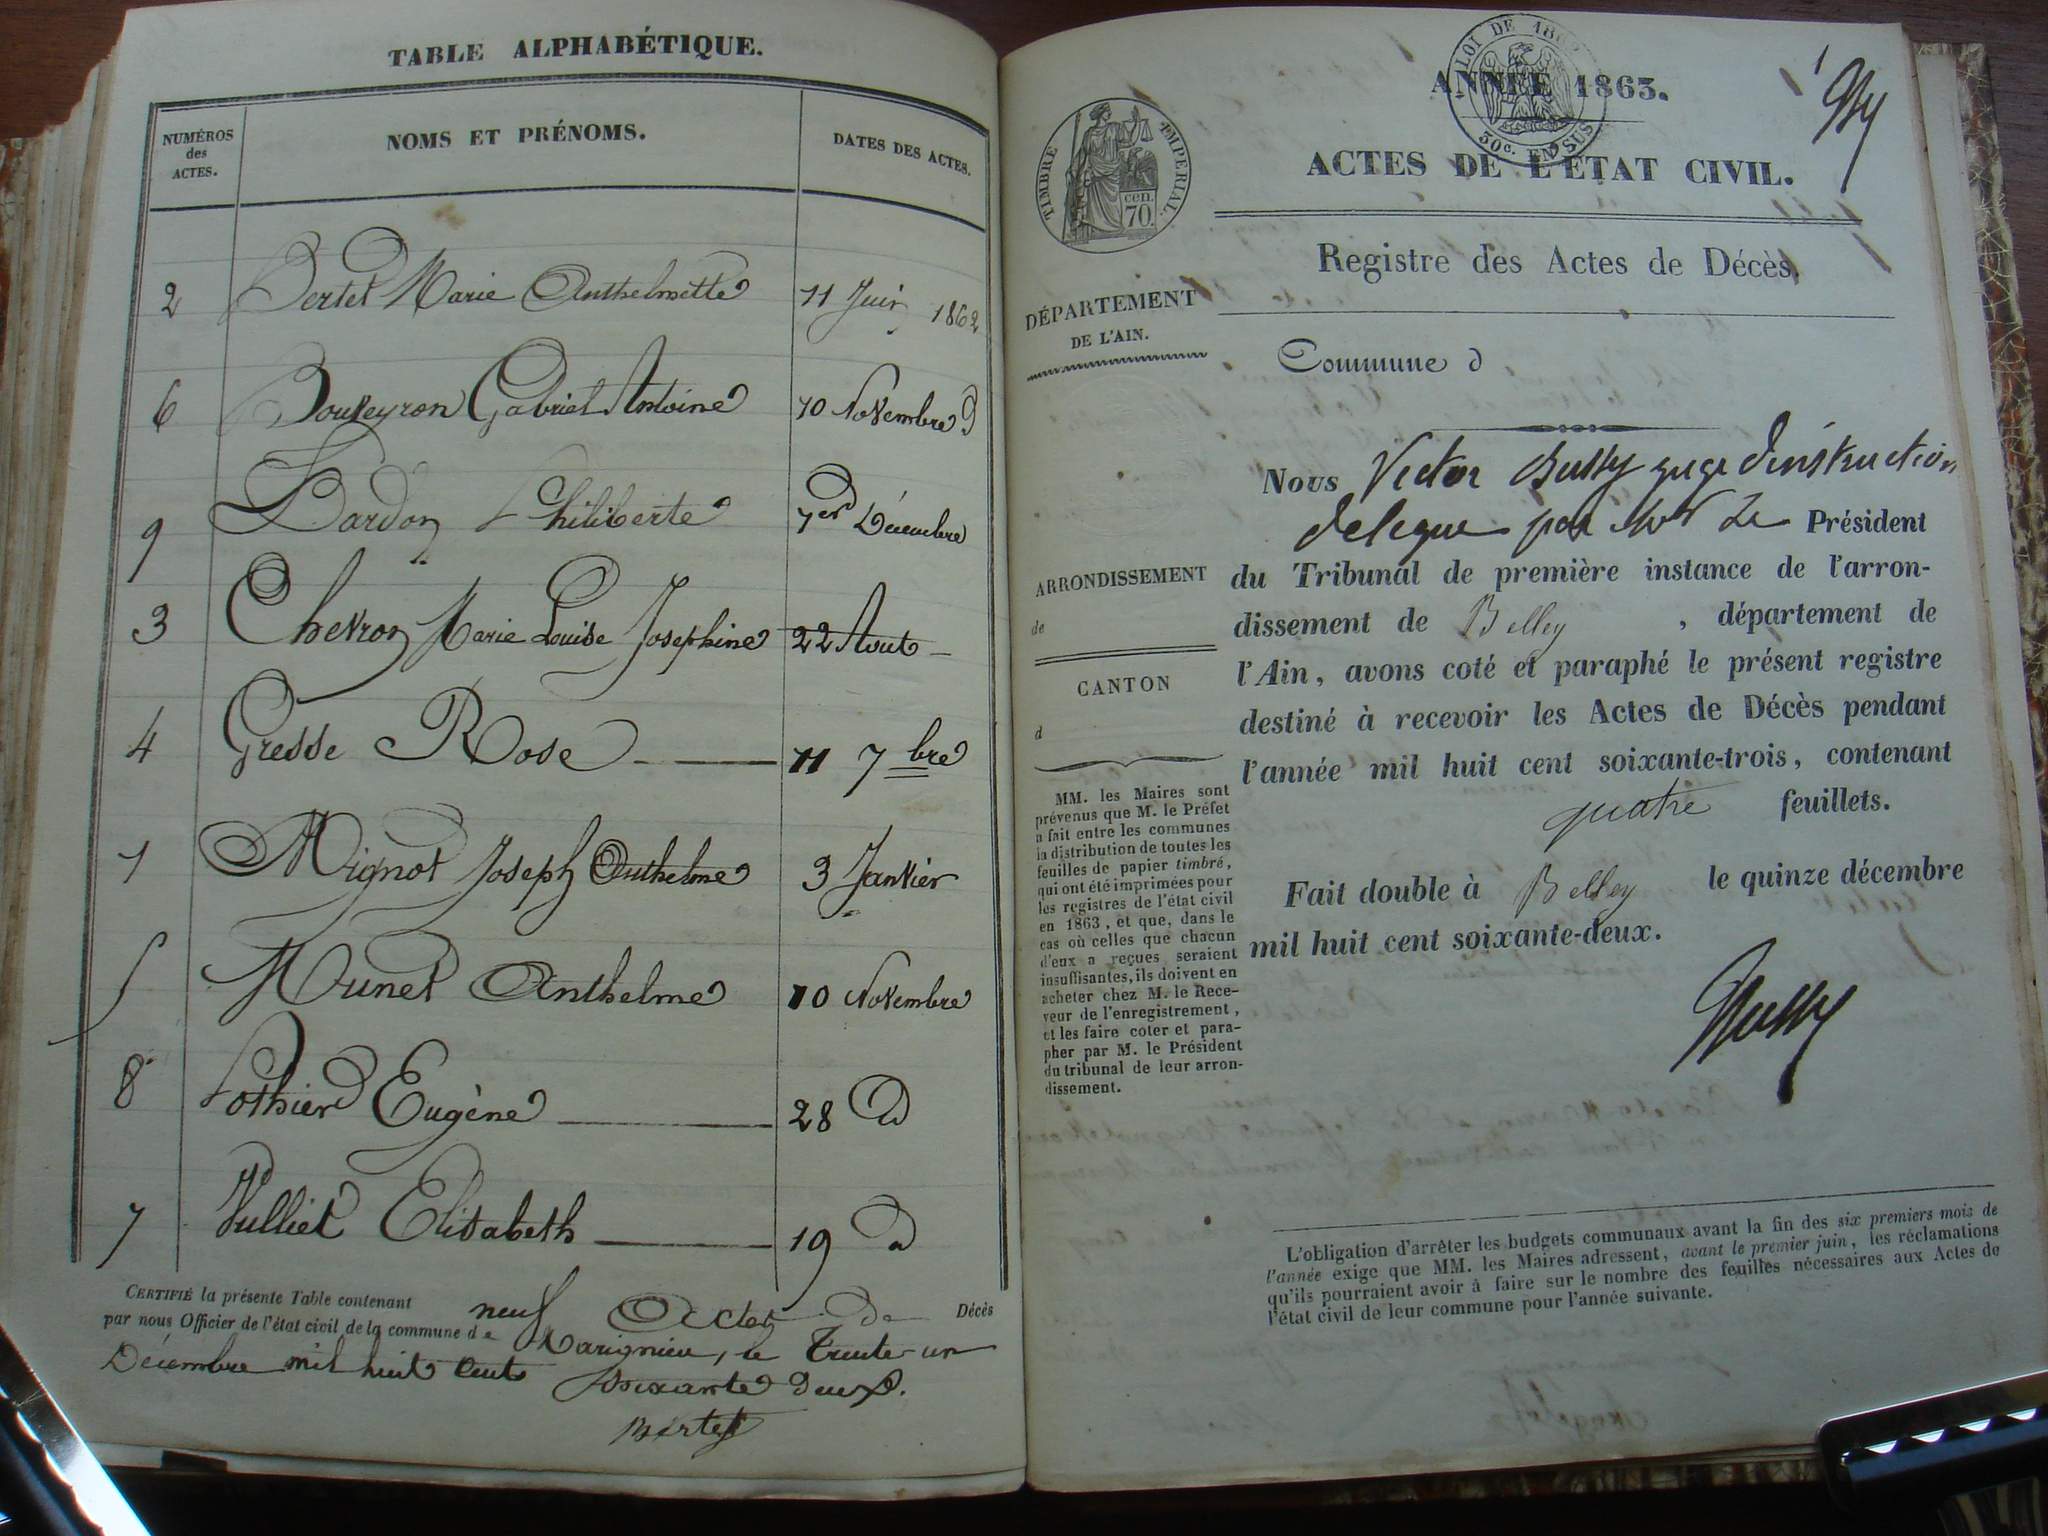 TABLE ALPHABÉTIQUE.
NUMÉROS des ACTES.
NOMS ET PRÉNOMS.
DATES DES ACTES.
2 Bertet Marie Anthelmette 11 Juin 1862
6 Bouveyron Gabriel Antoine 10 Novembre d
9 Bardon Philiberte 1er Décembre
3 Chevron Marie Louise Josephine 22 Aout
4 Gresse Rose 11 7bre
1 Mignot Joseph Anthelme 3 Janvier
5 Munet Anthelme 10 Novembre
8 Pothier Eugène 28 d
7 Vulliet Elisabeth 19 d
CERTIFIÉ la présente Table contenant neuf Actes de Décès
par nous Officier de l'état civil de la commune de Marignieu, le Trente-un
Décembre mil huit cent soixante Deux.
Bertet
LOI DE 1862
30c. EN SUS
ANNÉE 1863.
TIMBRE IMPÉRIAL.
cen.
70.
ACTES DE L'ÉTAT CIVIL.
Registre des Actes de Décès.
DÉPARTEMENT
DE L'AIN.
Commune d
Nous Victor Bussy juge d'instruction
delegue par Mr Le Président
du Tribunal de première instance de l'arron-
dissement de Belley , département de
l'Ain, avons coté et paraphé le présent registre
destiné à recevoir les Actes de Décès pendant
l'année mil huit cent soixante-trois, contenant
quatre feuillets.
Fait double à Belley le quinze décembre
mil huit cent soixante-deux.
Bussy
ARRONDISSEMENT
de
CANTON
d
MM. les Maires sont
prévenus que M. le Préfet
a fait entre les communes
la distribution de toutes les
feuilles de papier timbré,
qui ont été imprimées pour
les registres de l'état civil
en 1863, et que, dans le
cas où celles que chacun
d'eux a reçues seraient
insuffisantes, ils doivent en
acheter chez M. le Rece-
veur de l'enregistrement,
et les faire coter et para-
pher par M. le Président
du tribunal de leur arron-
dissement.
L'obligation d'arrêter les budgets communaux avant la fin des six premiers mois de
l'année exige que MM. les Maires adressent, avant le premier juin, les réclamations
qu'ils pourraient avoir à faire sur le nombre des feuilles nécessaires aux Actes de
l'état civil de leur commune pour l'année suivante.